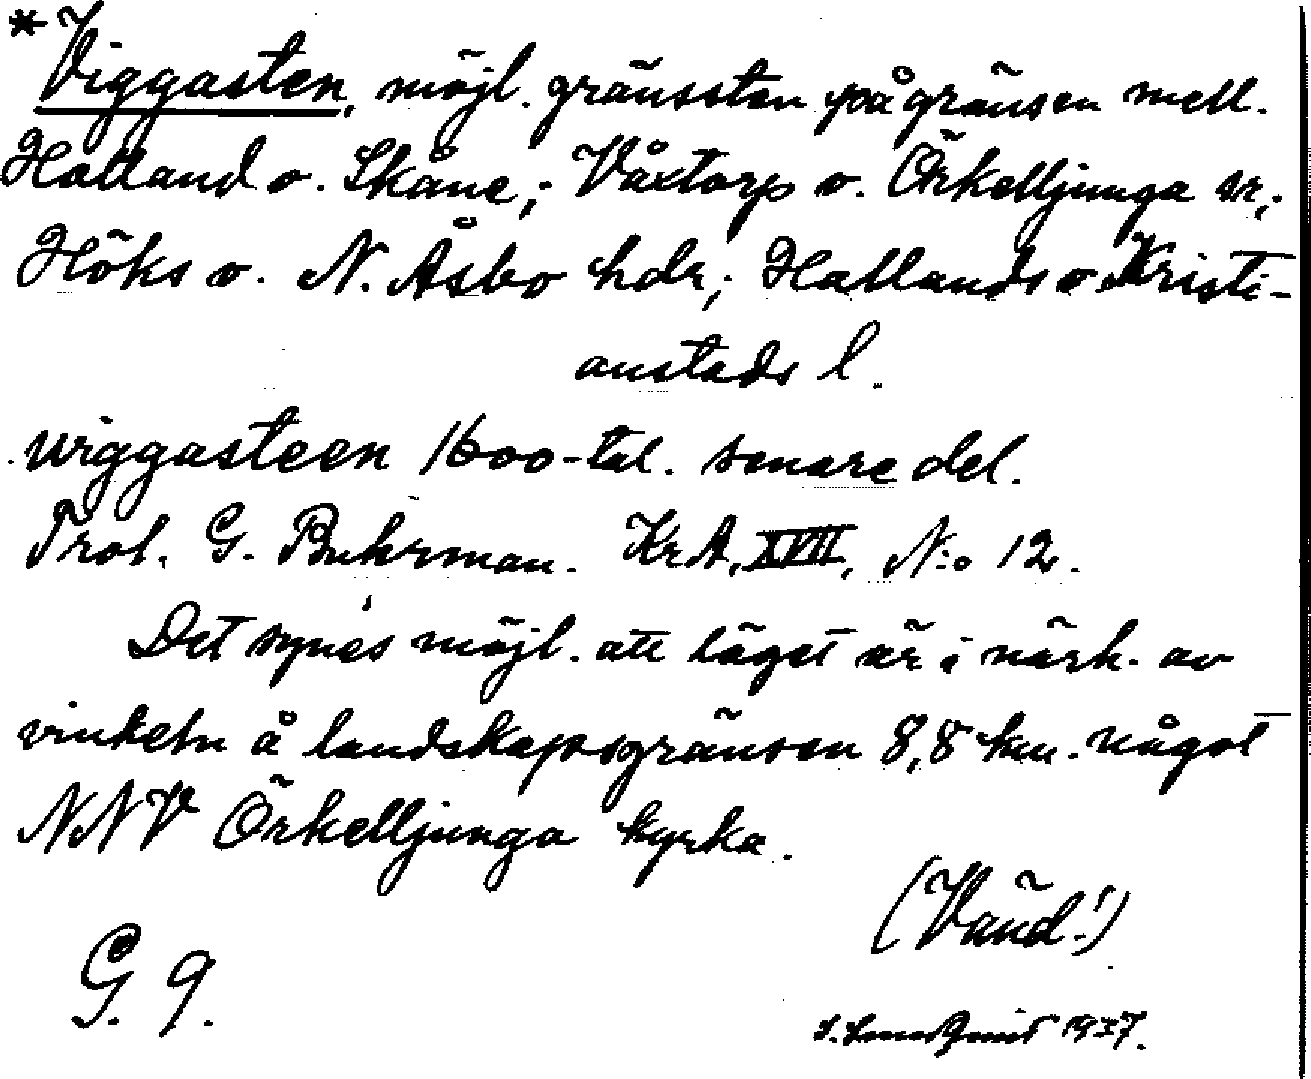 *Viggasten, möjl. gränssten på gränsen mell.
Halland o. Skåne; Våxtorp o. Örkelljunga sr,;
Höks o. N. Åsbo hdr; Hallands o Kristi-
anstads l.
wiggasteen 1600-tal. senare del.
Prot. G. Buhrman. KrA, XVII, N:o 12.
Det synes möjl. att läget är i närh. av
vinkeln å landskapsgränsen 8,8 km. något
NNV Örkelljunga kyrka.
(Vänd!)
G. 9.
1937.